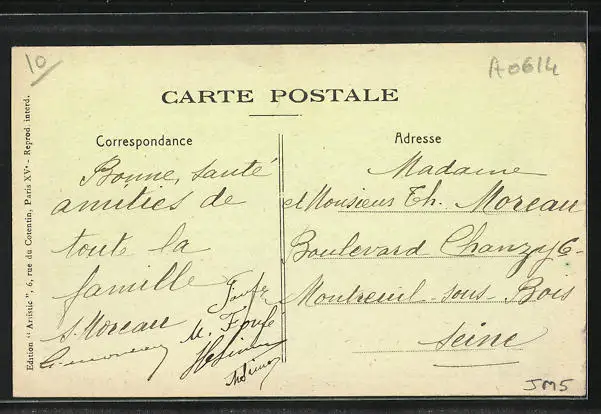 10
A0614
CARTE POSTALE
Correspondance
Adresse
Bonne, santé
amitiés de
toute la
famille
S. Moreau
M. Foufé
Madame
et Monsieur Th. Moreau
Boulevard Chanzy 6-
Montreuil-sous-Bois
Seine
Edition "Artistic", 6, rue du Cotentin, Paris XVe - Reprod. interd.
JM5